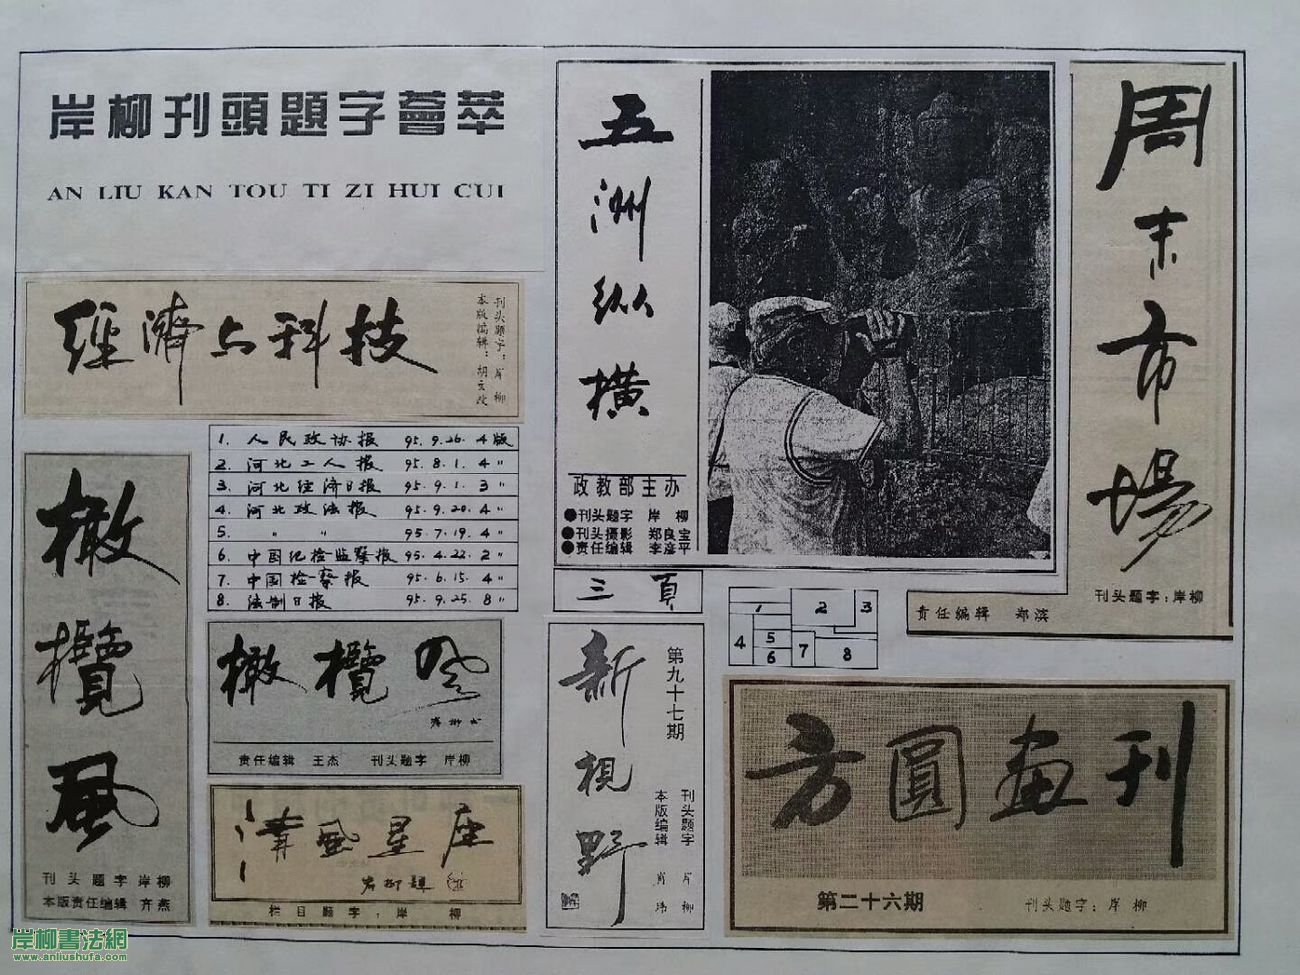 岸柳刊頭題字薈萃
AN LIU KAN TOU TI ZI HUI CUI
經濟与科技
刊头题字：岸柳
本版编辑：胡玄政
1. 人民政协报 95.9.26. 4版
2. 河北工人报 95.8.1. 4〃
3. 河北经济日报 95.9.1. 3〃
4. 河北政法报 95.9.20. 4〃
5. 〃 〃 95.7.19. 4〃
6. 中国纪检监察报 95.4.22. 2〃
7. 中国检察报 95.6.15. 4〃
8. 法制日报 95.9.25. 8〃
橄欖風
刊头题字 岸柳
本版责任编辑 齐燕
橄欖风
岸柳书
责任编辑 王杰 刊头题字 岸柳
清風星座
栏目题字：岸柳
五洲纵横
政教部主办
●刊头题字 岸柳
●刊头摄影 郑良宝
●责任编辑 李彦平
三頁
新視野
第九十七期
刊头题字 岸柳
本版编辑 肖玮
周末市場
刊头题字：岸柳
责任编辑 郑滨
1 2 3
4 5 6 7 8
方圓画刊
第二十六期
刊头题字：岸柳
岸柳書法網
www.anliushufa.com